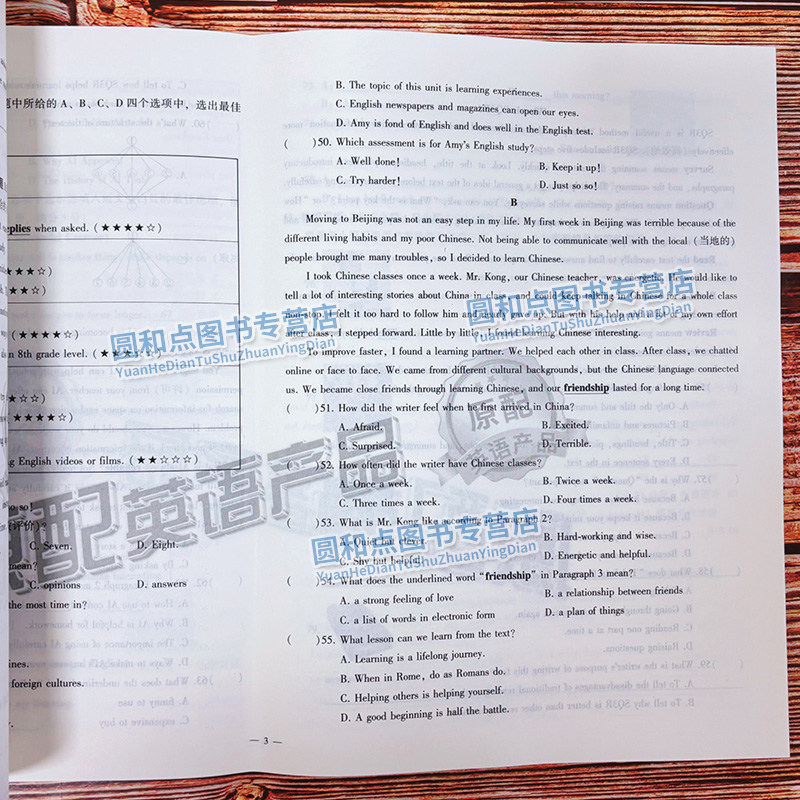 题中所给的 A、B、C、D 四个选项中，选出最佳
replies when asked. (★★★★☆)
★★★☆)
★★★☆)
★★★★)
an 8th grade level. (★★☆☆☆)
☆☆☆)
★★★☆)
ng English videos or films. (★★☆☆☆)
so so!
评价)?
C. Seven. D. Eight.
mean?
C. opinions D. answers
the most time in?
ines.
foreign cultures.
B. The topic of this unit is learning experiences.
C. English newspapers and magazines can open our eyes.
D. Amy is fond of English and does well in the English test.
( )50. Which assessment is for Amy's English study?
A. Well done! B. Keep it up!
C. Try harder! D. Just so so!
B
Moving to Beijing was not an easy step in my life. My first week in Beijing was terrible because of the
different living habits and my poor Chinese. Not being able to communicate well with the local (当地的)
people brought me many troubles, so I decided to learn Chinese.
I took Chinese classes once a week. Mr. Kong, our Chinese teacher, was energetic. He would like to
tell a lot of interesting stories about China in class and could keep talking in Chinese for a whole class
non-stop. I felt it too hard to follow him and nearly gave up. But with his help and lots of my own effort
after class, I stepped forward. Little by little, I found learning Chinese interesting.
To improve faster, I found a learning partner. We helped each other in class. After class, we chatted
online or face to face. We came from different cultural backgrounds, but the Chinese language connected
us. We became close friends through learning Chinese, and our friendship lasted for a long time.
( )51. How did the writer feel when he first arrived in China?
A. Afraid. B. Excited.
C. Surprised. D. Terrible.
( )52. How often did the writer have Chinese classes?
A. Once a week. B. Twice a week.
C. Three times a week. D. Four times a week.
( )53. What is Mr. Kong like according to Paragraph 2?
A. Quiet but clever. B. Hard-working and wise.
C. Shy but helpful. D. Energetic and helpful.
( )54. What does the underlined word "friendship" in Paragraph 3 mean?
A. a strong feeling of love B. a relationship between friends
C. a list of words in electronic form D. a plan of things
( )55. What lesson can we learn from the text?
A. Learning is a lifelong journey.
B. When in Rome, do as Romans do.
C. Helping others is helping yourself.
D. A good beginning is half the battle.
— 3 —
圆和点图书专营店
YuanHeDianTuShuZhuanYingDian
圆和点图书专营店
YuanHeDianTuShuZhuanYingDian
圆和点图书专营店
YuanHeDianTuShuZhuanYingDian
原配
英语产品
配英语产品